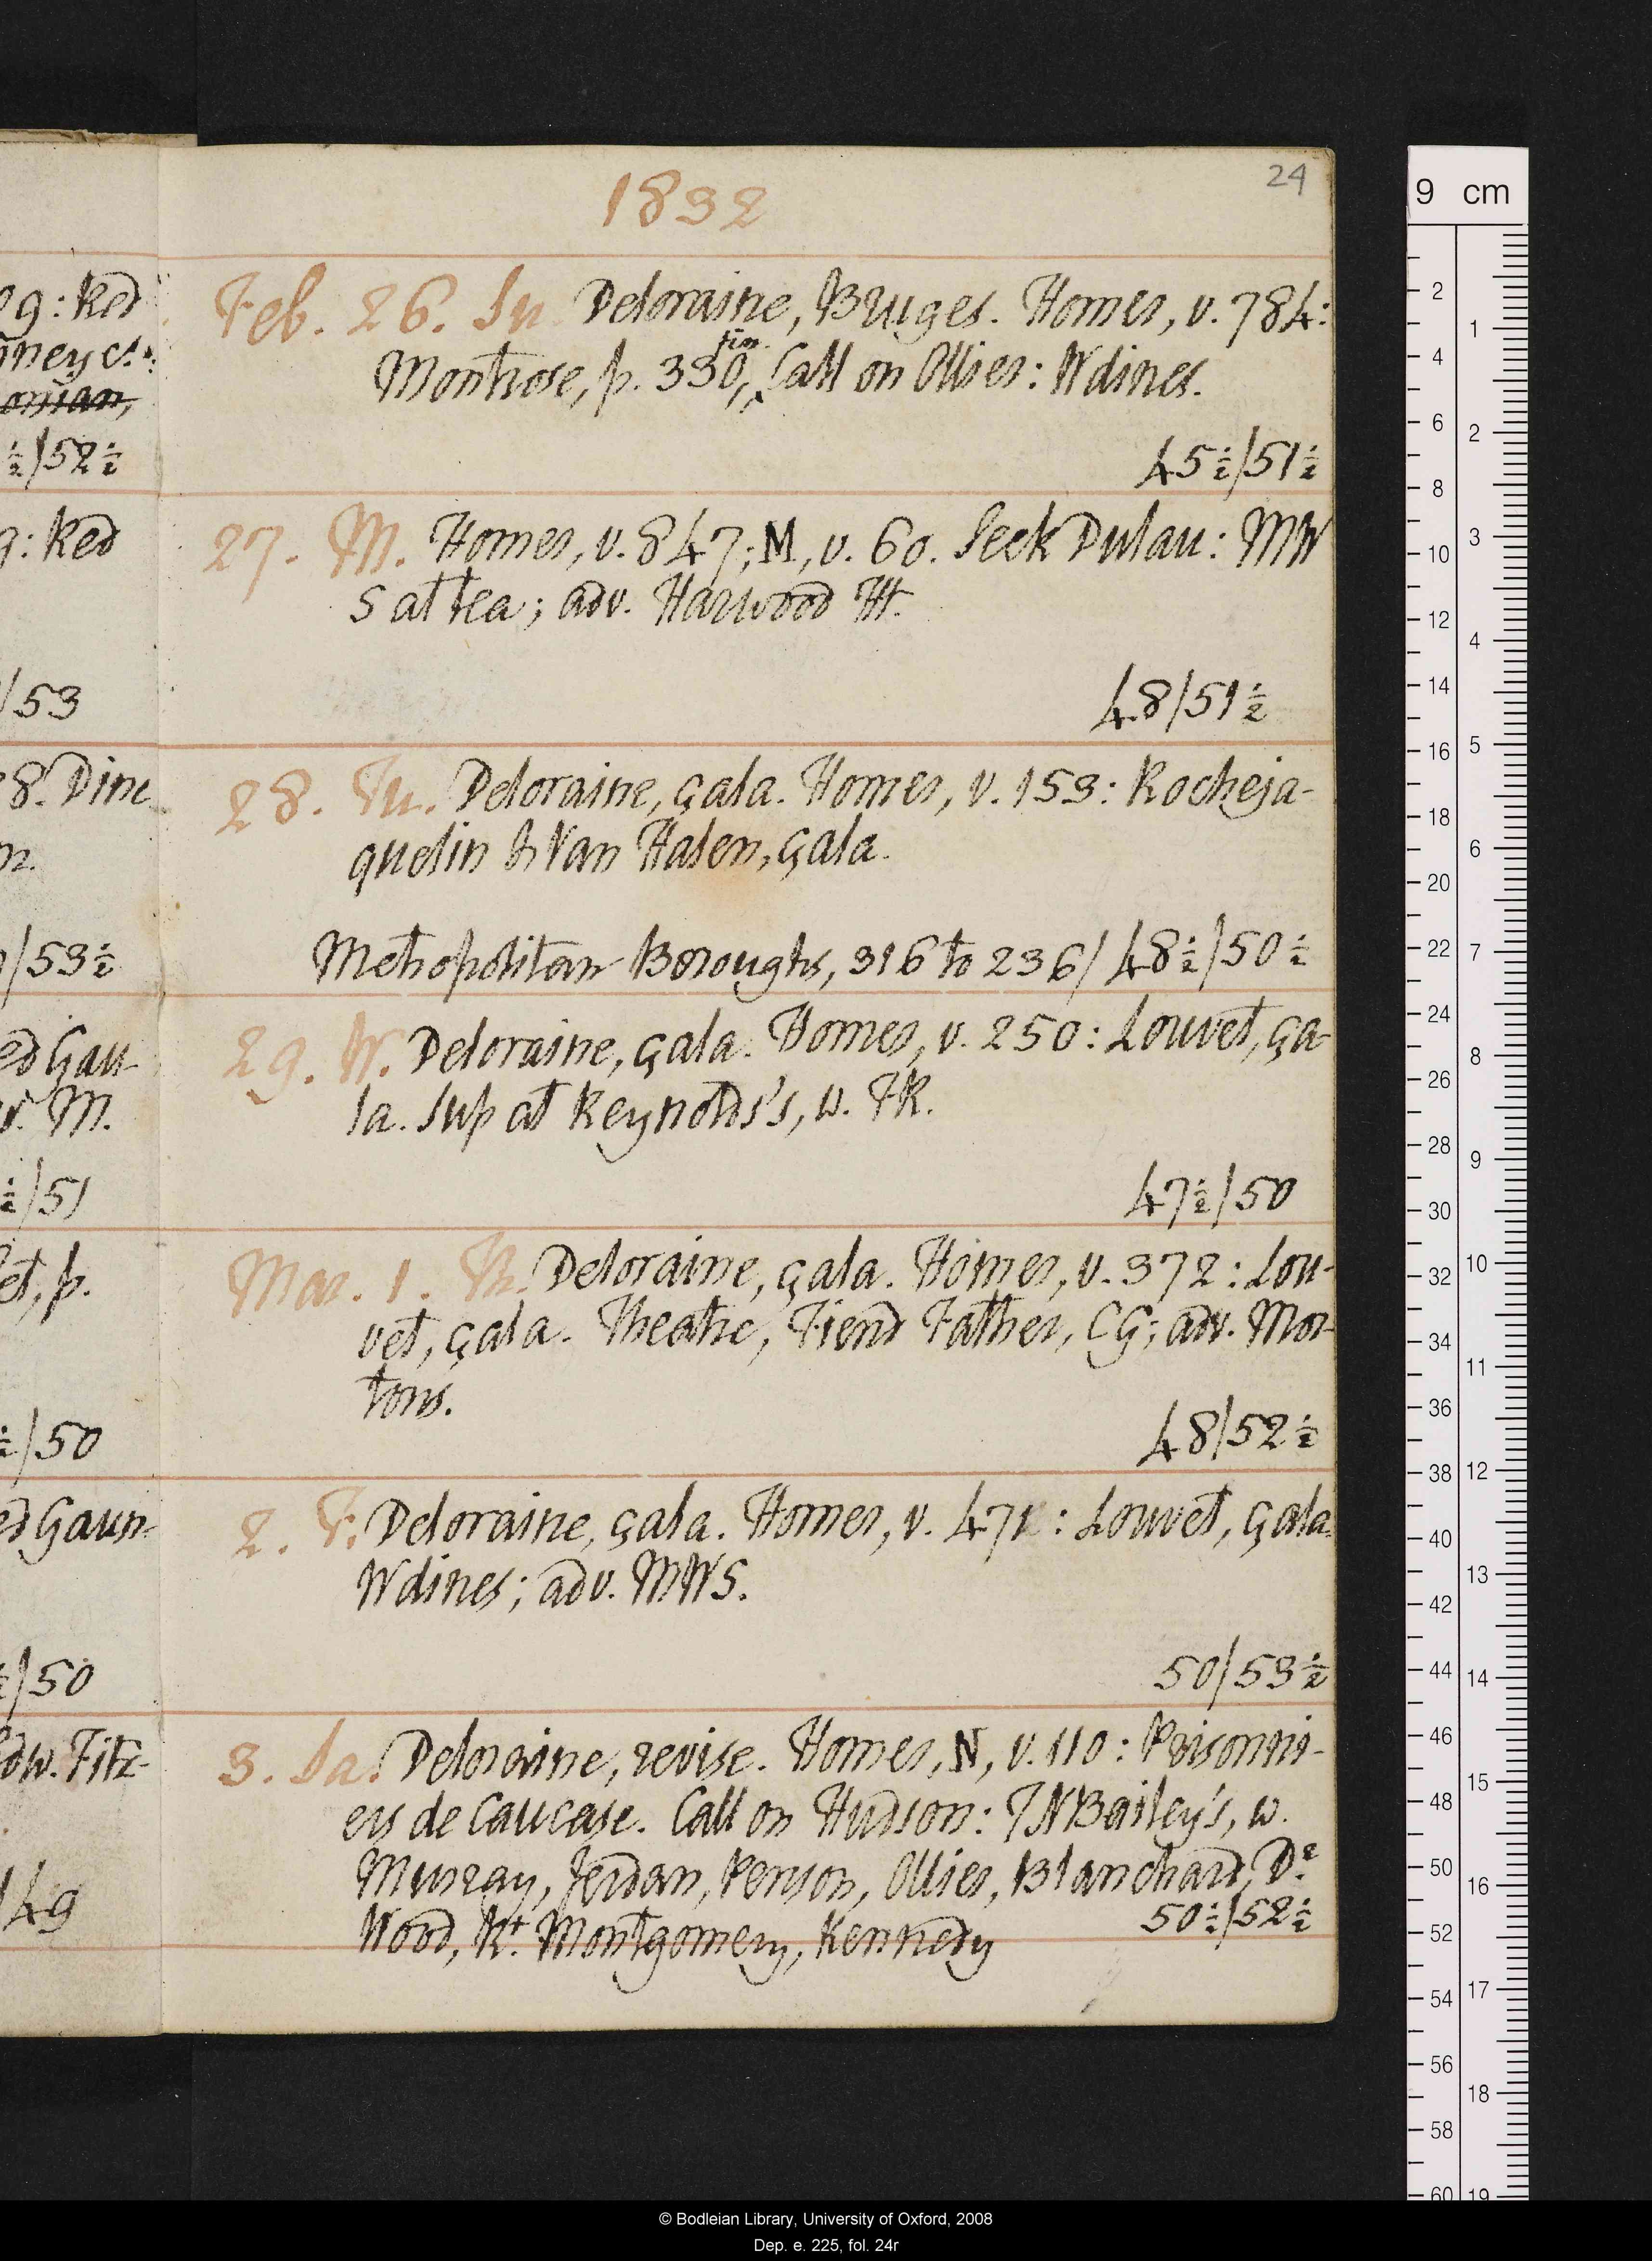 24
1832
Feb. 26. Su. Deloraine, Bruges. Homer, v. 784:
Montrose, p. 330, fin. Call on Ollier: W dines.
45½/51½
27. M. Homer, v. 847; M, v. 60. Seek Dulau: MW
S at tea; adv. Harwood H.
48/51½
28. Tu. Deloraine, çala. Homer, v. 153: Rocheja-
quelin & Van Halen, çala.
Metropolitan Boroughs, 316 to 236/48½/50½
29. W. Deloraine, çala. Homer, v. 250: Louvet, ça-
la. Sup at Reynolds's, w. FK.
47½/50
Mar. 1. Th. Deloraine, çala. Homer, v. 372: Lou-
vet, çala. Theatre, Fiend Father, CG; adv. Mor-
tons.
48/52½
2. F. Deloraine, çala. Homer, v. 471: Louvet, çala.
W dines; adv. MWS.
50/53½
3. Sa. Deloraine, revise. Homer, N, v. 110: Prisonni-
ers de Caucase. Call on Hudson: TNBailey's, w.
Murray, Jerdan, Penson, Ollier, Blanchard, Dr.
Wood, Rt. Montgomery, Kennedy
50½/52½
9: Red
ney ct.
onian,
½/52½
9: Red
/53
8. Dine
m.
/53½
ed Gau-
M.
½/51
et, p.
½/50
ed Gaun-
½/50
dw. Fitz-
/49
9 cm
2
4
6
8
10
12
14
16
18
20
22
24
26
28
30
32
34
36
38
40
42
44
46
48
50
52
54
56
58
60
1
2
3
4
5
6
7
8
9
10
11
12
13
14
15
16
17
18
19
© Bodleian Library, University of Oxford, 2008
Dep. e. 225, fol. 24r